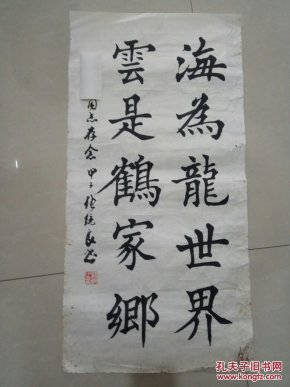 海為龍世界
雲是鶴家鄉
同志存念 甲子 張統良書
孔夫子旧书网